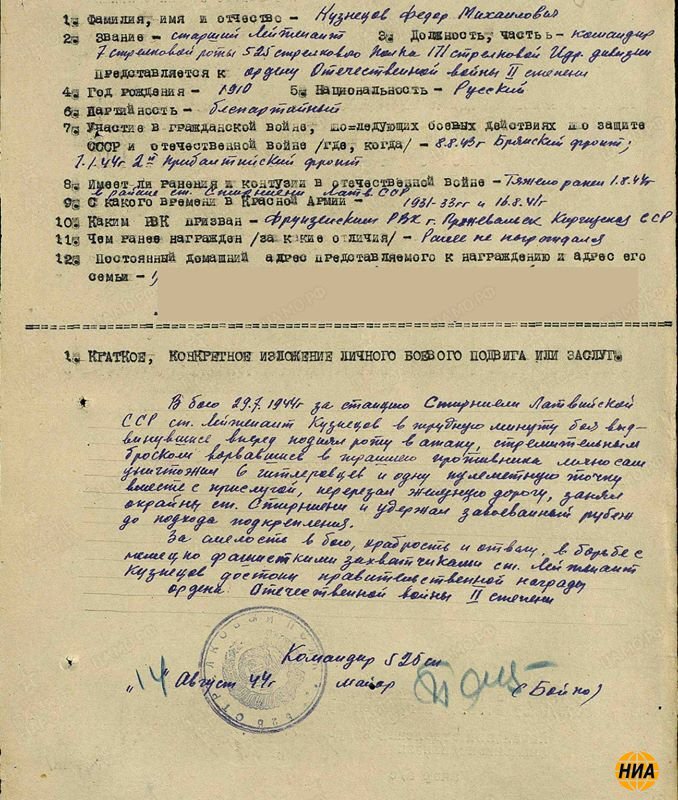 1. Фамилия, имя и отчество – Кузнецов Федор Михайлович
2. Звание – старший лейтенант 3. Должность, часть – командир
7 стрелковой роты 525 стрелкового полка III стрелковой Идр. дивизии
Представляется к ордену Отечественной войны II степени
4. Год рождения – 1910 5. Национальность – Русский
6. Партийность – беспартайный
7. Участие в гражданской войне, последующих боевых действиях по защите
СССР и отечественной войне /где, когда/ – 8.8.43г Брянский фронт;
7.1.44г 2й Прибалтийский фронт
8. Имеет ли ранения и контузии в отечественной войне – Тяжело ранен 1.8.44г
в районе ст. Стирниени Латв. ССР
9. С какого времени в Красной Армии – 1931-33гг и 16.8.41г
10. Каким РВК призван – Фрунзенским РВК г. Пржевальск Киргизская ССР
11. Чем ранее награжден /за какие отличия/ – Ранее не награждался
12. Постоянный домашний адрес представляемого к награждению и адрес его
семьи –
1. КРАТКОЕ, КОНКРЕТНОЕ ИЗЛОЖЕНИЕ ЛИЧНОГО БОЕВОГО ПОДВИГА ИЛИ ЗАСЛУГ.
В бою 29.7.1944г за станцию Стирниени Латвийской
ССР ст. Лейтенант Кузнецов в трудную минуту боя выд-
винувшись вперед поднял роту в атаку, стремительным
броском ворвавшись в траншею противника лично сам
уничтожил 6 гитлеровцев и одну пулеметную точку
вместе с прислугой, перерезал железную дорогу, занял
окраины ст. Стирниени и удержал завоеванный рубеж
до подхода подкрепления.
За смелость в бою, храбрость и отвагу, в борьбе с
немецко фашисткими захватчиками ст. Лейтенант
Кузнецов достоин правительственной награды
ордена Отечественной войны II степени
Командир 525 сп
"14" Август 44г майор (Бойко)
НИА